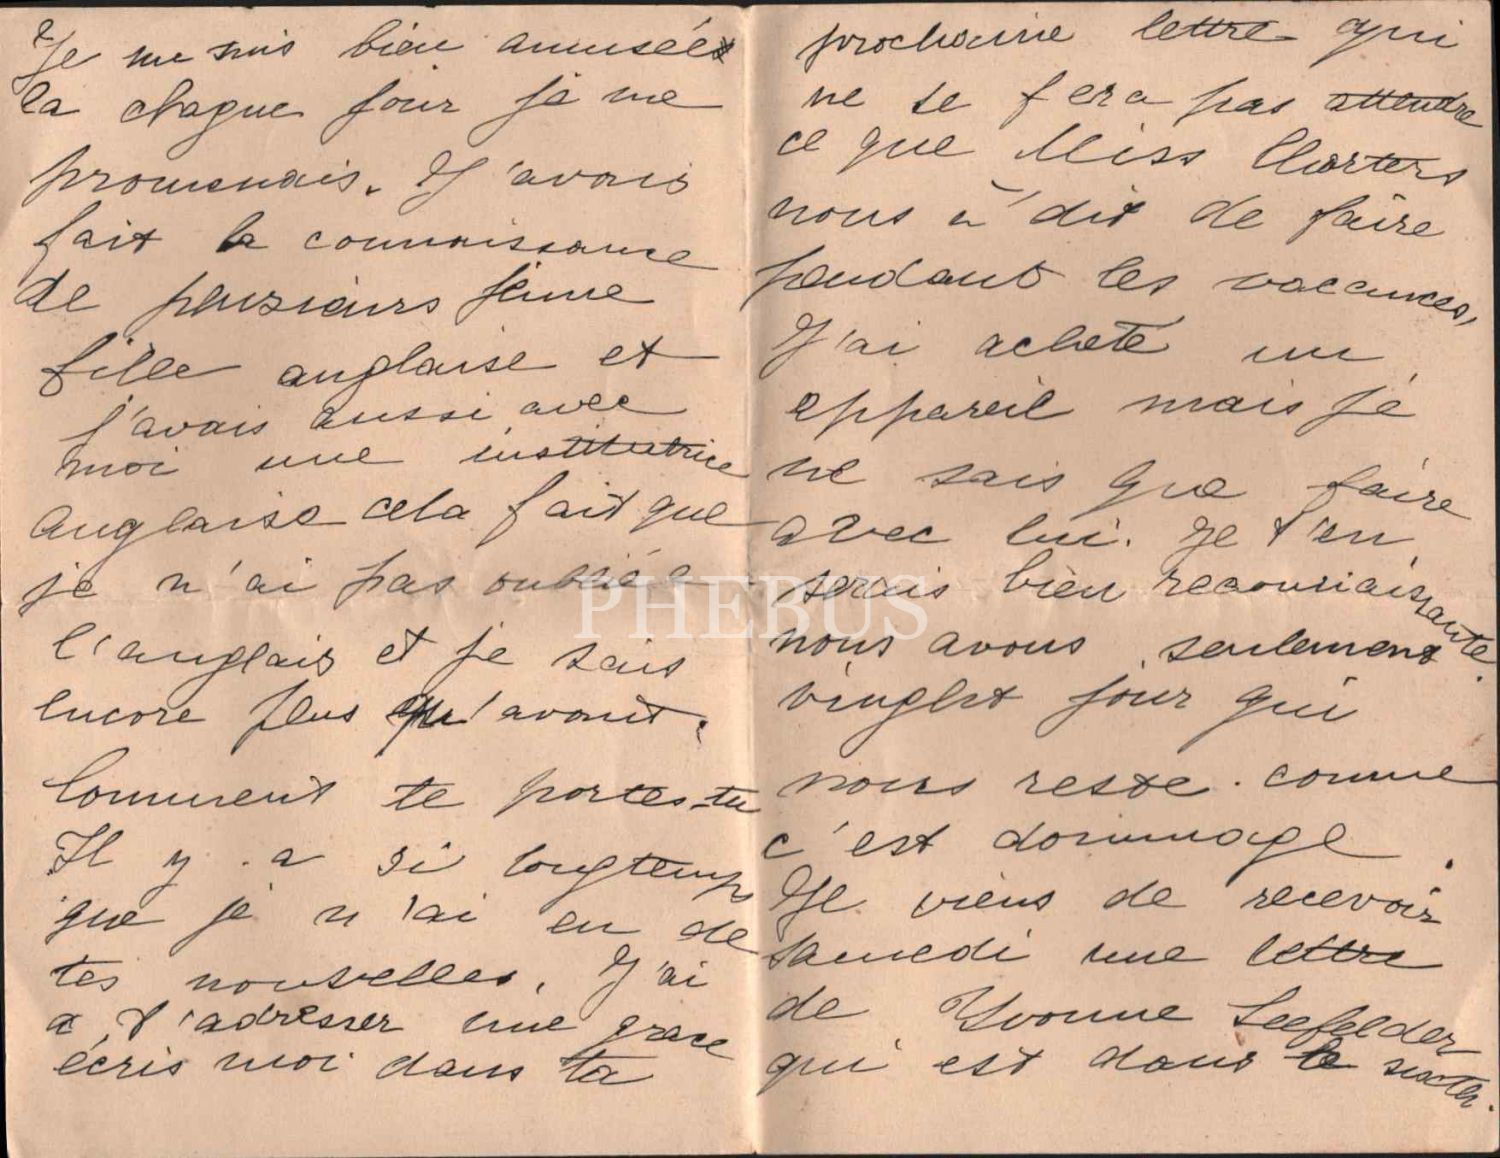 Je me suis bien amusées
la chaque jour je me
promenais. J'avais
fait la connaissance
de plusieurs jeune
fille anglaise et
j'avais aussi avec
moi une institutrice
anglaise cela fait que
je n'ai pas oublié
l'anglais et je sais
encore plus qu'avant.
Comment te portes-tu
Il y a si longtemps
que je n'ai eu de
tes nouvelles. J'ai
a t'adresser une grace
écris moi dans ta
prochaine lettre qui
ne se fera pas attendre
ce que Miss Charters
nous à dit de faire
pendant les vacances,
J'ai acheté un
appareil mais je
ne sais que faire
avec lui. Je t'en
serais bien reconnaissante.
nous avons seulement
vinght jour qui
nous reste. comme
c'est dommage.
Je viens de recevoir
samedi une lettre
de Yvonne Seefelder
qui est dans le
PHEBUS